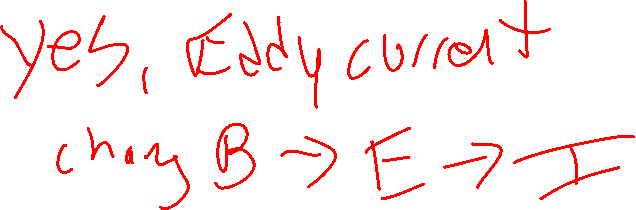 yes, Eddy current
chang B → E → I